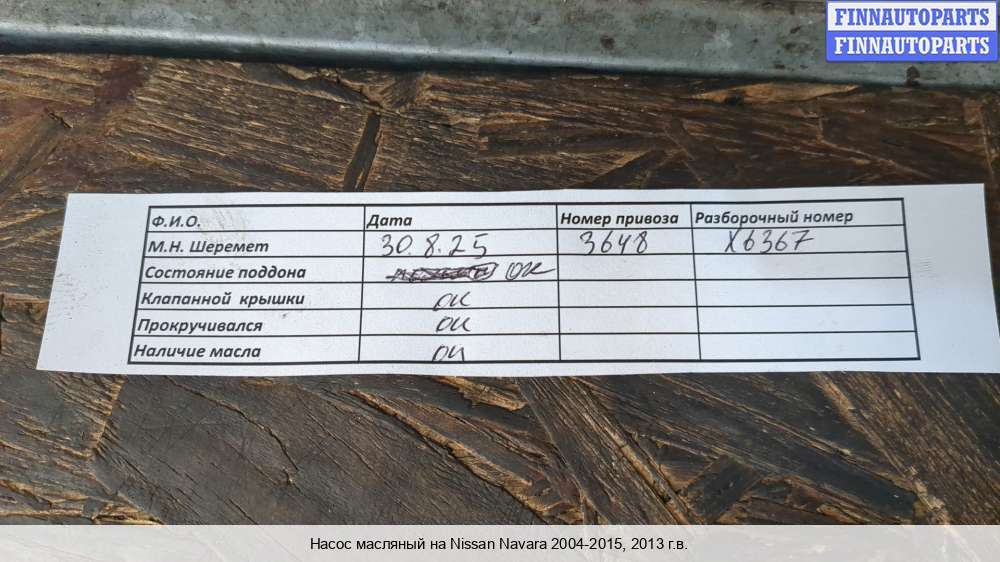 FINNAUTOPARTS
FINNAUTOPARTS
Ф.И.О. Дата Номер привоза Разборочный номер
М.Н. Шеремет 30.8.25 3648 X6367
Состояние поддона ОК
Клапанной крышки ОК
Прокручивался ОК
Наличие масла ОК
Насос масляный на Nissan Navara 2004-2015, 2013 г.в.